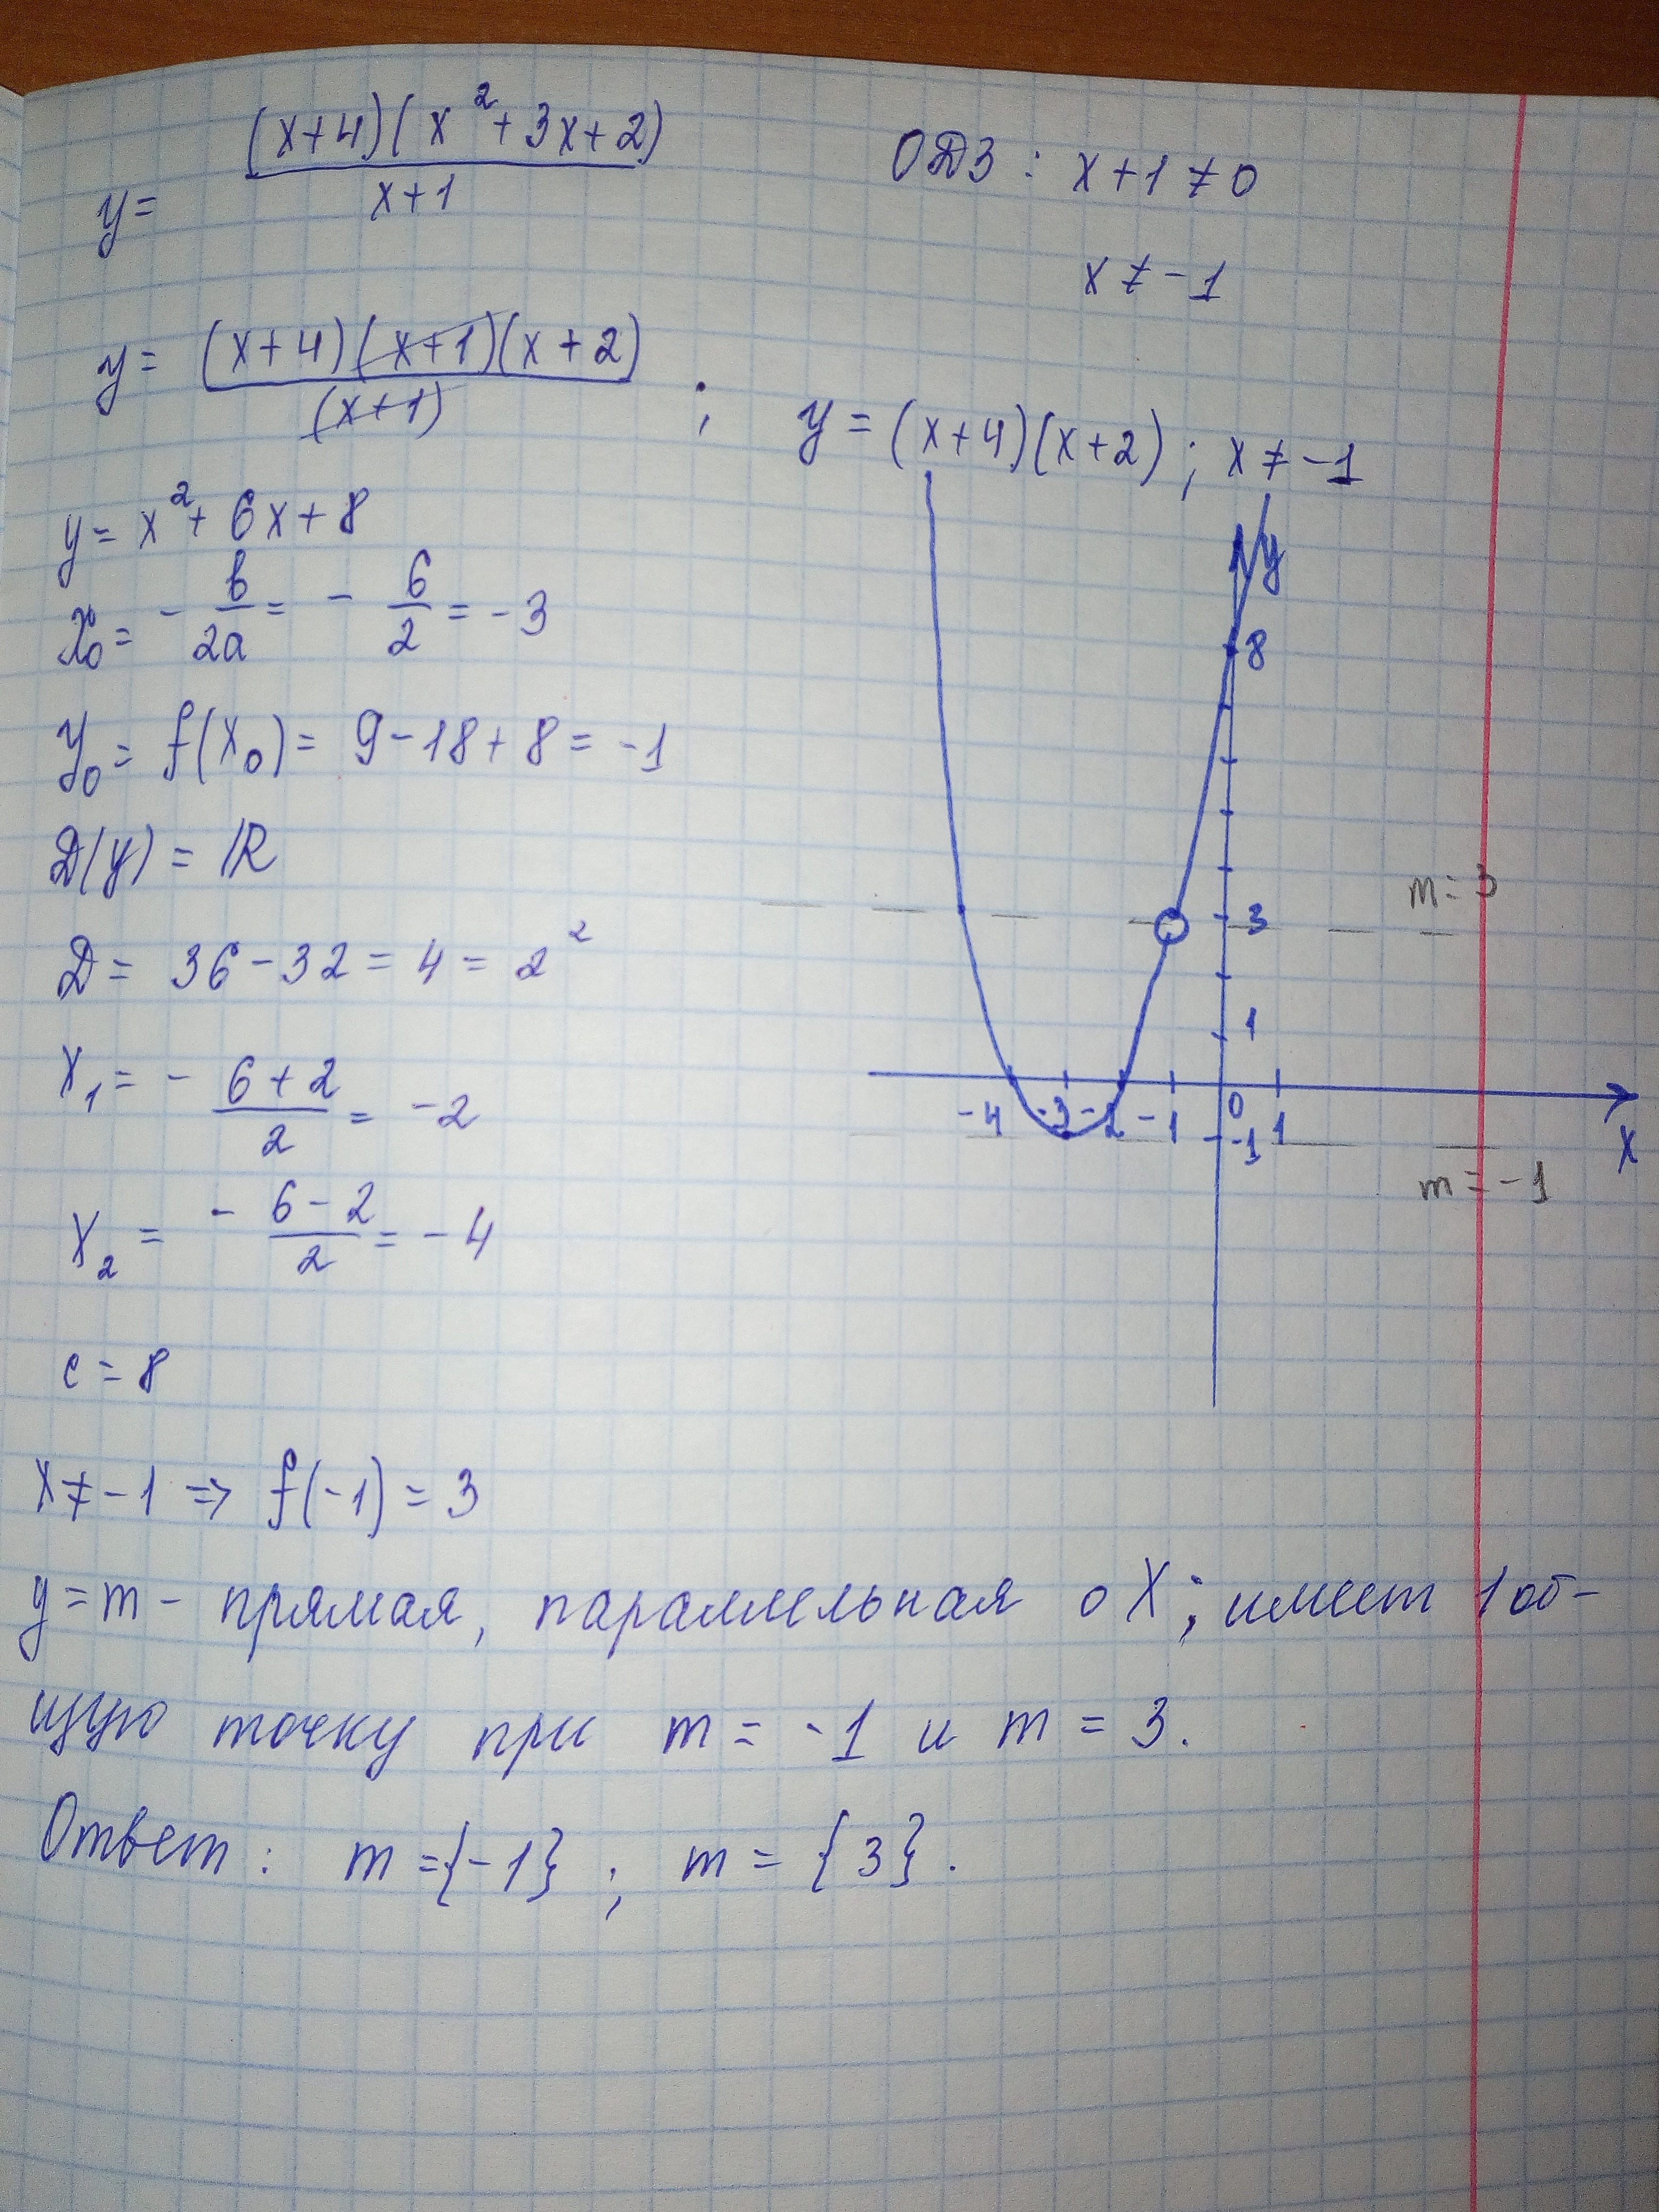 y = (x+4)(x²+3x+2) / x+1
ОДЗ: x+1 ≠ 0
x ≠ -1
y = (x+4)(x+1)(x+2) / (x+1) ; y = (x+4)(x+2); x ≠ -1
y = x² + 6x + 8
x₀ = - b/2a = - 6/2 = -3
y₀ = f(x₀) = 9 - 18 + 8 = -1
D(y) = R
D = 36 - 32 = 4 = 2²
x₁ = - 6+2 / 2 = -2
x₂ = - 6-2 / 2 = -4
c = 8
x ≠ -1 => f(-1) = 3
y
8
m = 3
3
1
-4 -3 -2 -1 0 1
x
-1
m = -1
y = m - прямая, параллельная оX; имеет 1 об-
щую точку при m = -1 и m = 3.
Ответ: m = {-1} ; m = {3}.